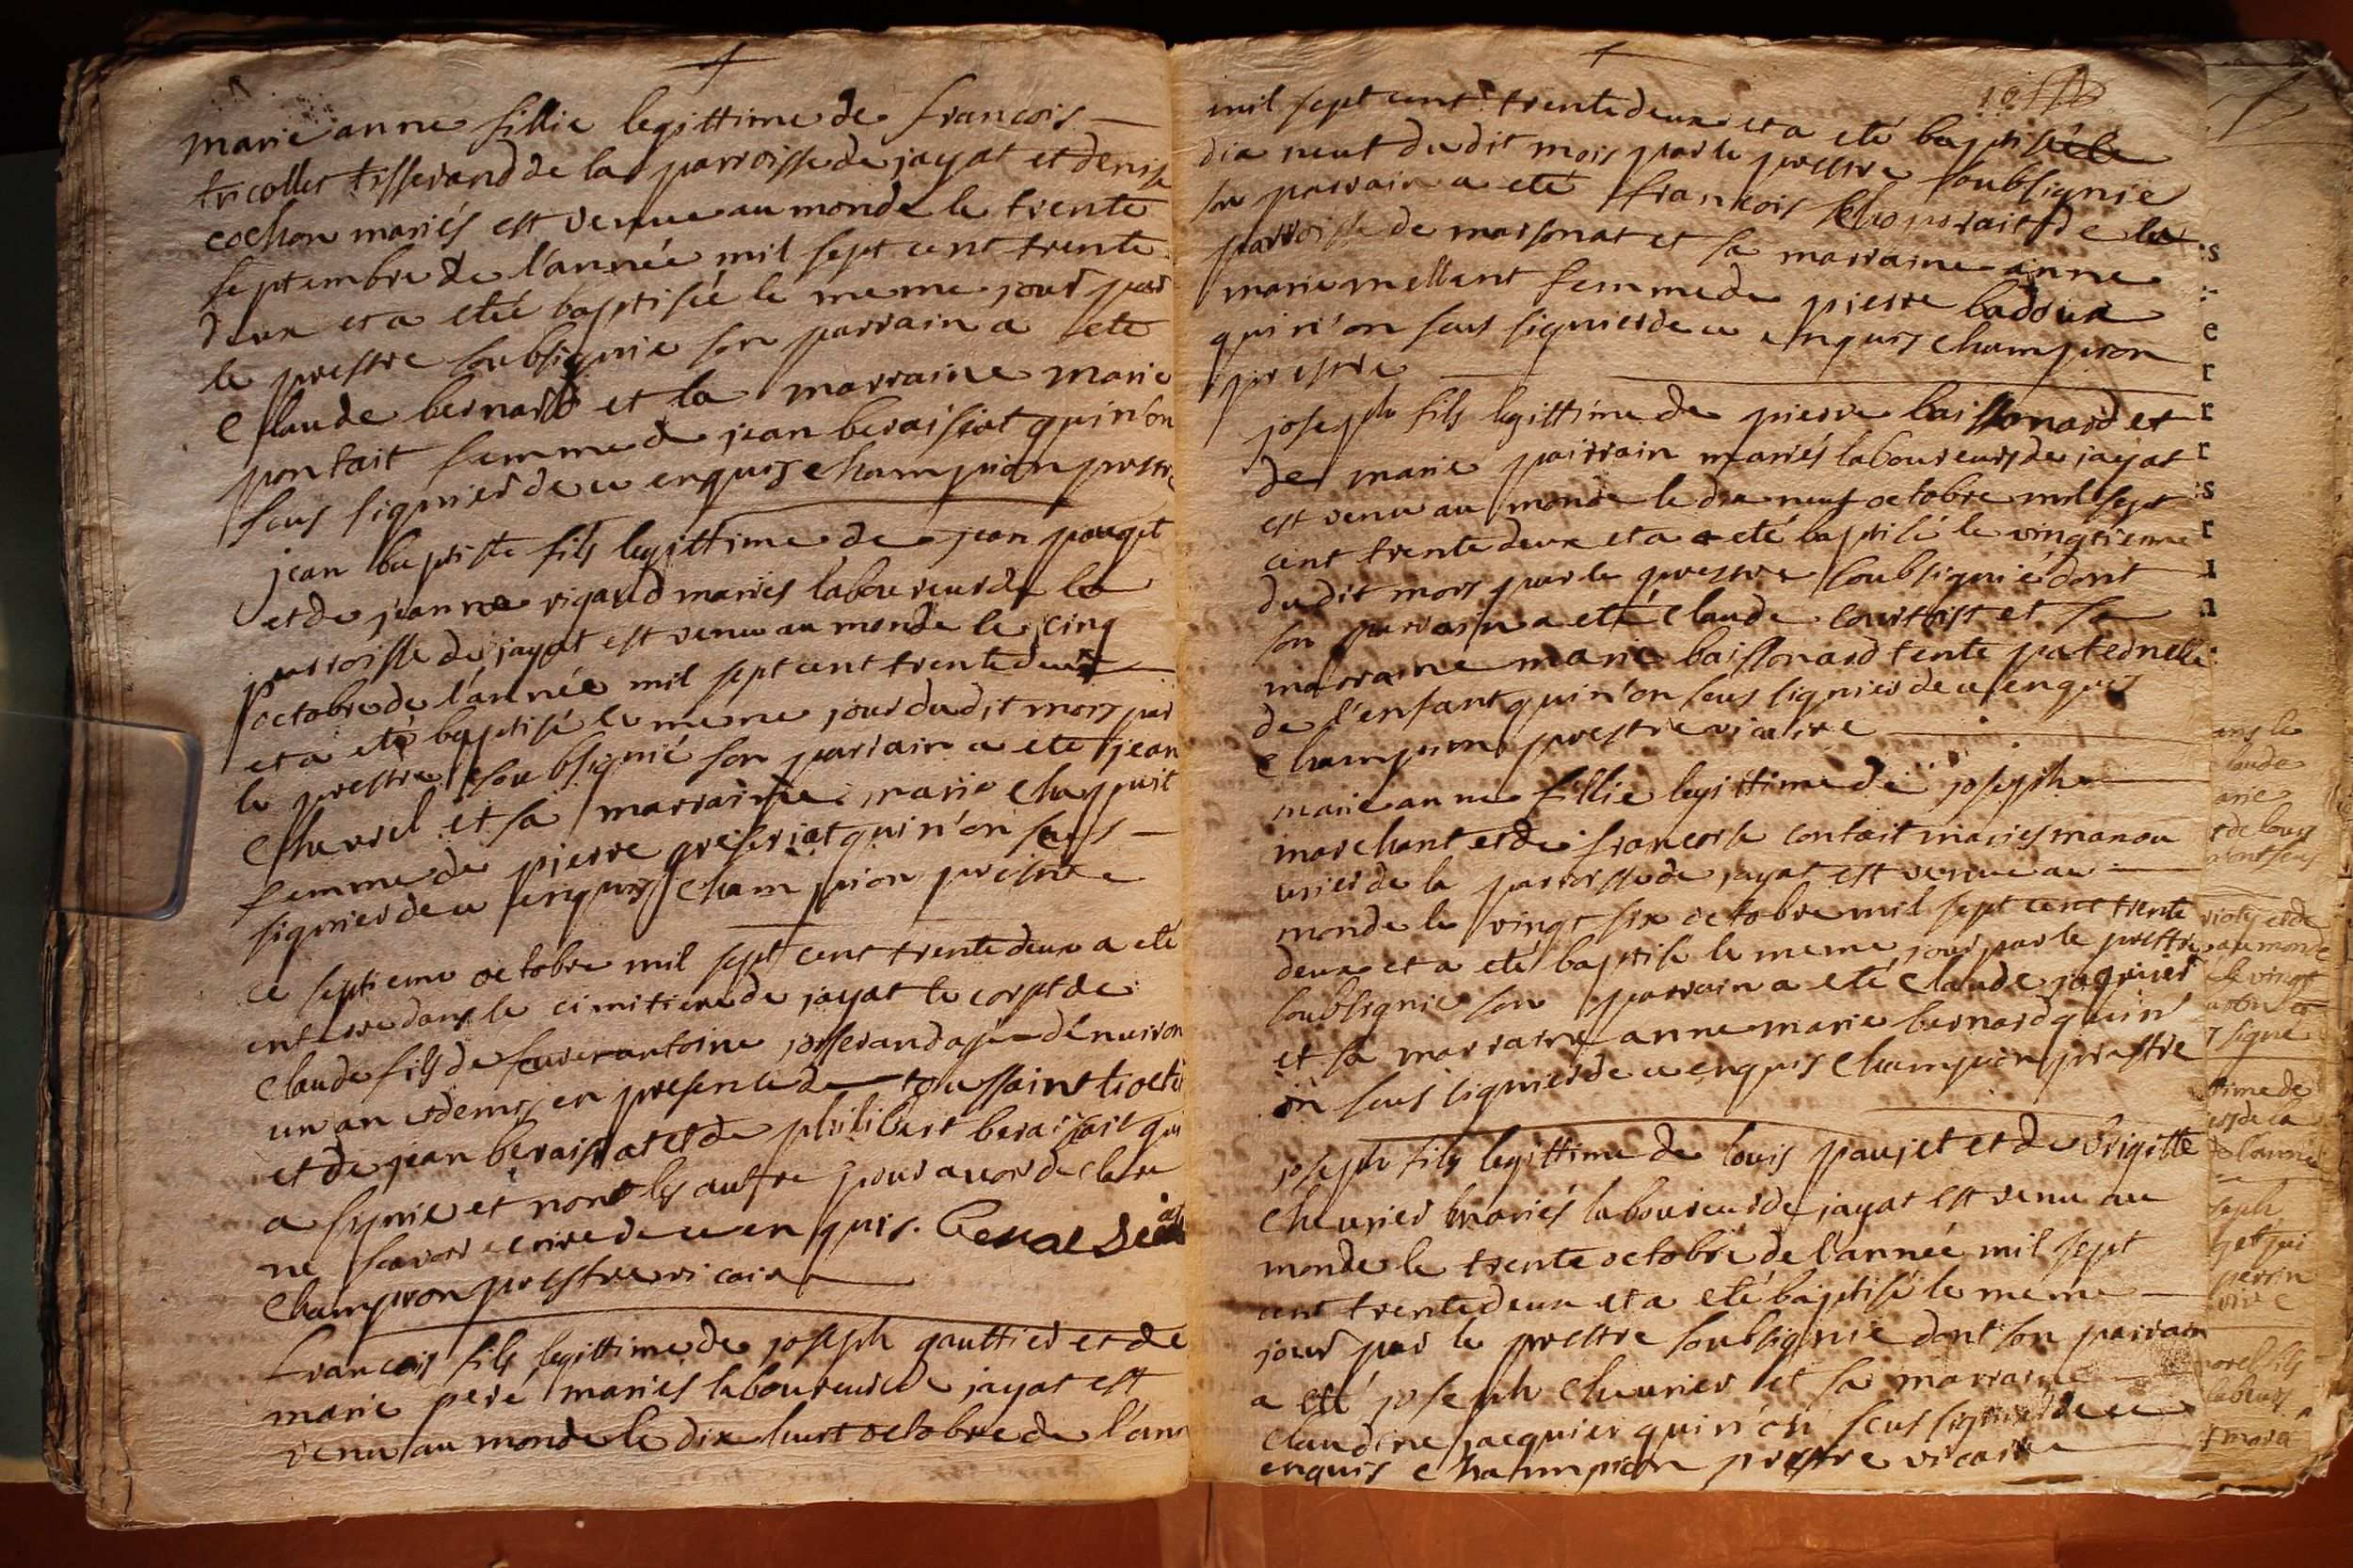 marie anne fillie legittime de francois
tricollet tisserand de la parroisse de jayat et denise
cochon mariés est venue au monde le trente
septembre de l'année mil sept cent trente
deux et a eté baptisée le meme jour par
le prestre soubsignie son parrain a ete
Claude bernard et la marraine marie
pontait femme de jean beraisiat qui n'on
seus signier de ce enquis Champion prestre
jean baptiste fils legittime de jean pauget
et de jeanne rigaud mariés laboureurs de la
parroisse de jayat est venu au monde le cinq
octobre de l'année mil sept cent trente deux
et a eté baptisé le meme jour dudit mois par
le prestre soubsignié son parrain a ete jean
Chevrel et sa marraine marie
femme de pierre qui n'on seus
signier de ce enquis Champion prestre
ce septieme octobre mil sept cent trente deux a eté
enterre dans le cimitiere de jayat le corpt de
Claude fils de antoine josserand agé denuiron
un an et demis en presence de toussaint
et de jean beraisiat et de philibert beraisiat qui
a signie et non les autre pour avoir declere
ne savoir ecrire de ce enquis.
Champion prestre vicaire
francois fils legittime de joseph gauttier et de
marie peré mariés laboureurs de jayat est
venu au monde le dix huit octobre de l'ann
mil sept cent trente deux et a eté baptisé le
dix neuf dudit mois par le prestre soubsignie
son parrain a eté francois de la
parroisse de marsonat et sa marraine anne
marie mellent femme de pierre badoux
qui n'on seus signier de ce enquis Champion
prestre
joseph fils legittime de pierre baissonard et
de marie poirrain mariés laboureurs de jayat
est venu au monde le dix neuf octobre mil sept
cent trente deux et a eté baptisé le vingtieme
dudit mois par le prestre soubsignié dont
son parrain a eté Claude et sa
marraine marie baissonard tente paternelle
de l'enfant qui n'on seus signier de ce enquis
Champion prestre vicaire
marie anne fillie legittime de joseph
marchant et de francoise contait mariés manou
uriers de la parroisse de jayat est venue au
monde le vingt six octobre mil sept cent trente
deux et a eté baptisé le meme jour par le prestre
soubsignie son parrain a eté Claude jaquier
et sa marraine anne marie bernard qui n'
on seus signier de ce enquis Champion prestre
joseph fils legittime de louis paujet et de brigitte
Cheurier mariés laboureurs de jayat est venu au
monde le trente octobre de l'année mil sept
cent trente deux et a eté baptisé le meme
jour par le prestre soubsignie dont son parrain
a eté joseph Cheurier et sa marraine
Claudine jacquier qui n'on seus signier de ce
enquis Champion prestre vicaire